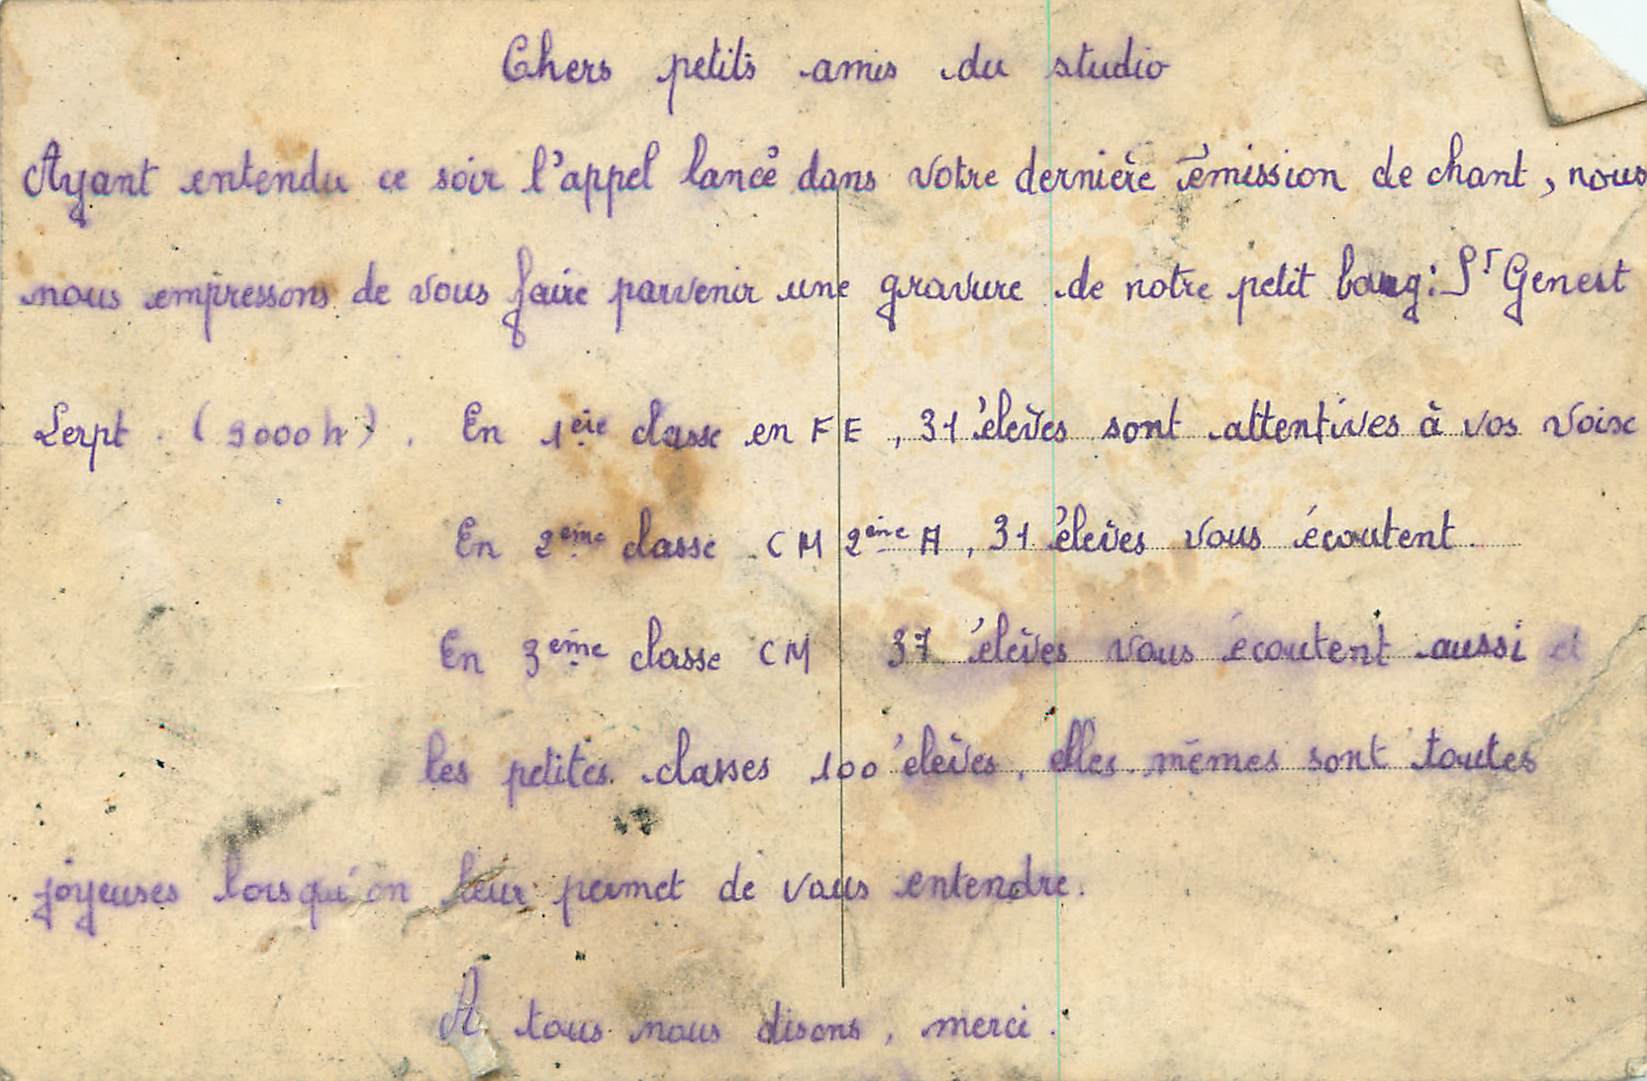 Chers petits amis du studio
Ayant entendu ce soir l'appel lancé dans votre dernière émission de chant, nous
nous empressons de vous faire parvenir une gravure de notre petit bourg : St Genest
Lerpt . (9000 h) . En 1ère classe en FE , 31 élèves sont attentives à vos voix
En 2ème classe CM 2ème A , 31 élèves vous écoutent .
En 3ème classe CM 37 élèves vous écoutent aussi et
les petites classes 100 élèves , elles mêmes sont toutes
joyeuses lorsqu'on leur permet de vous entendre .
A tous nous disons , merci .